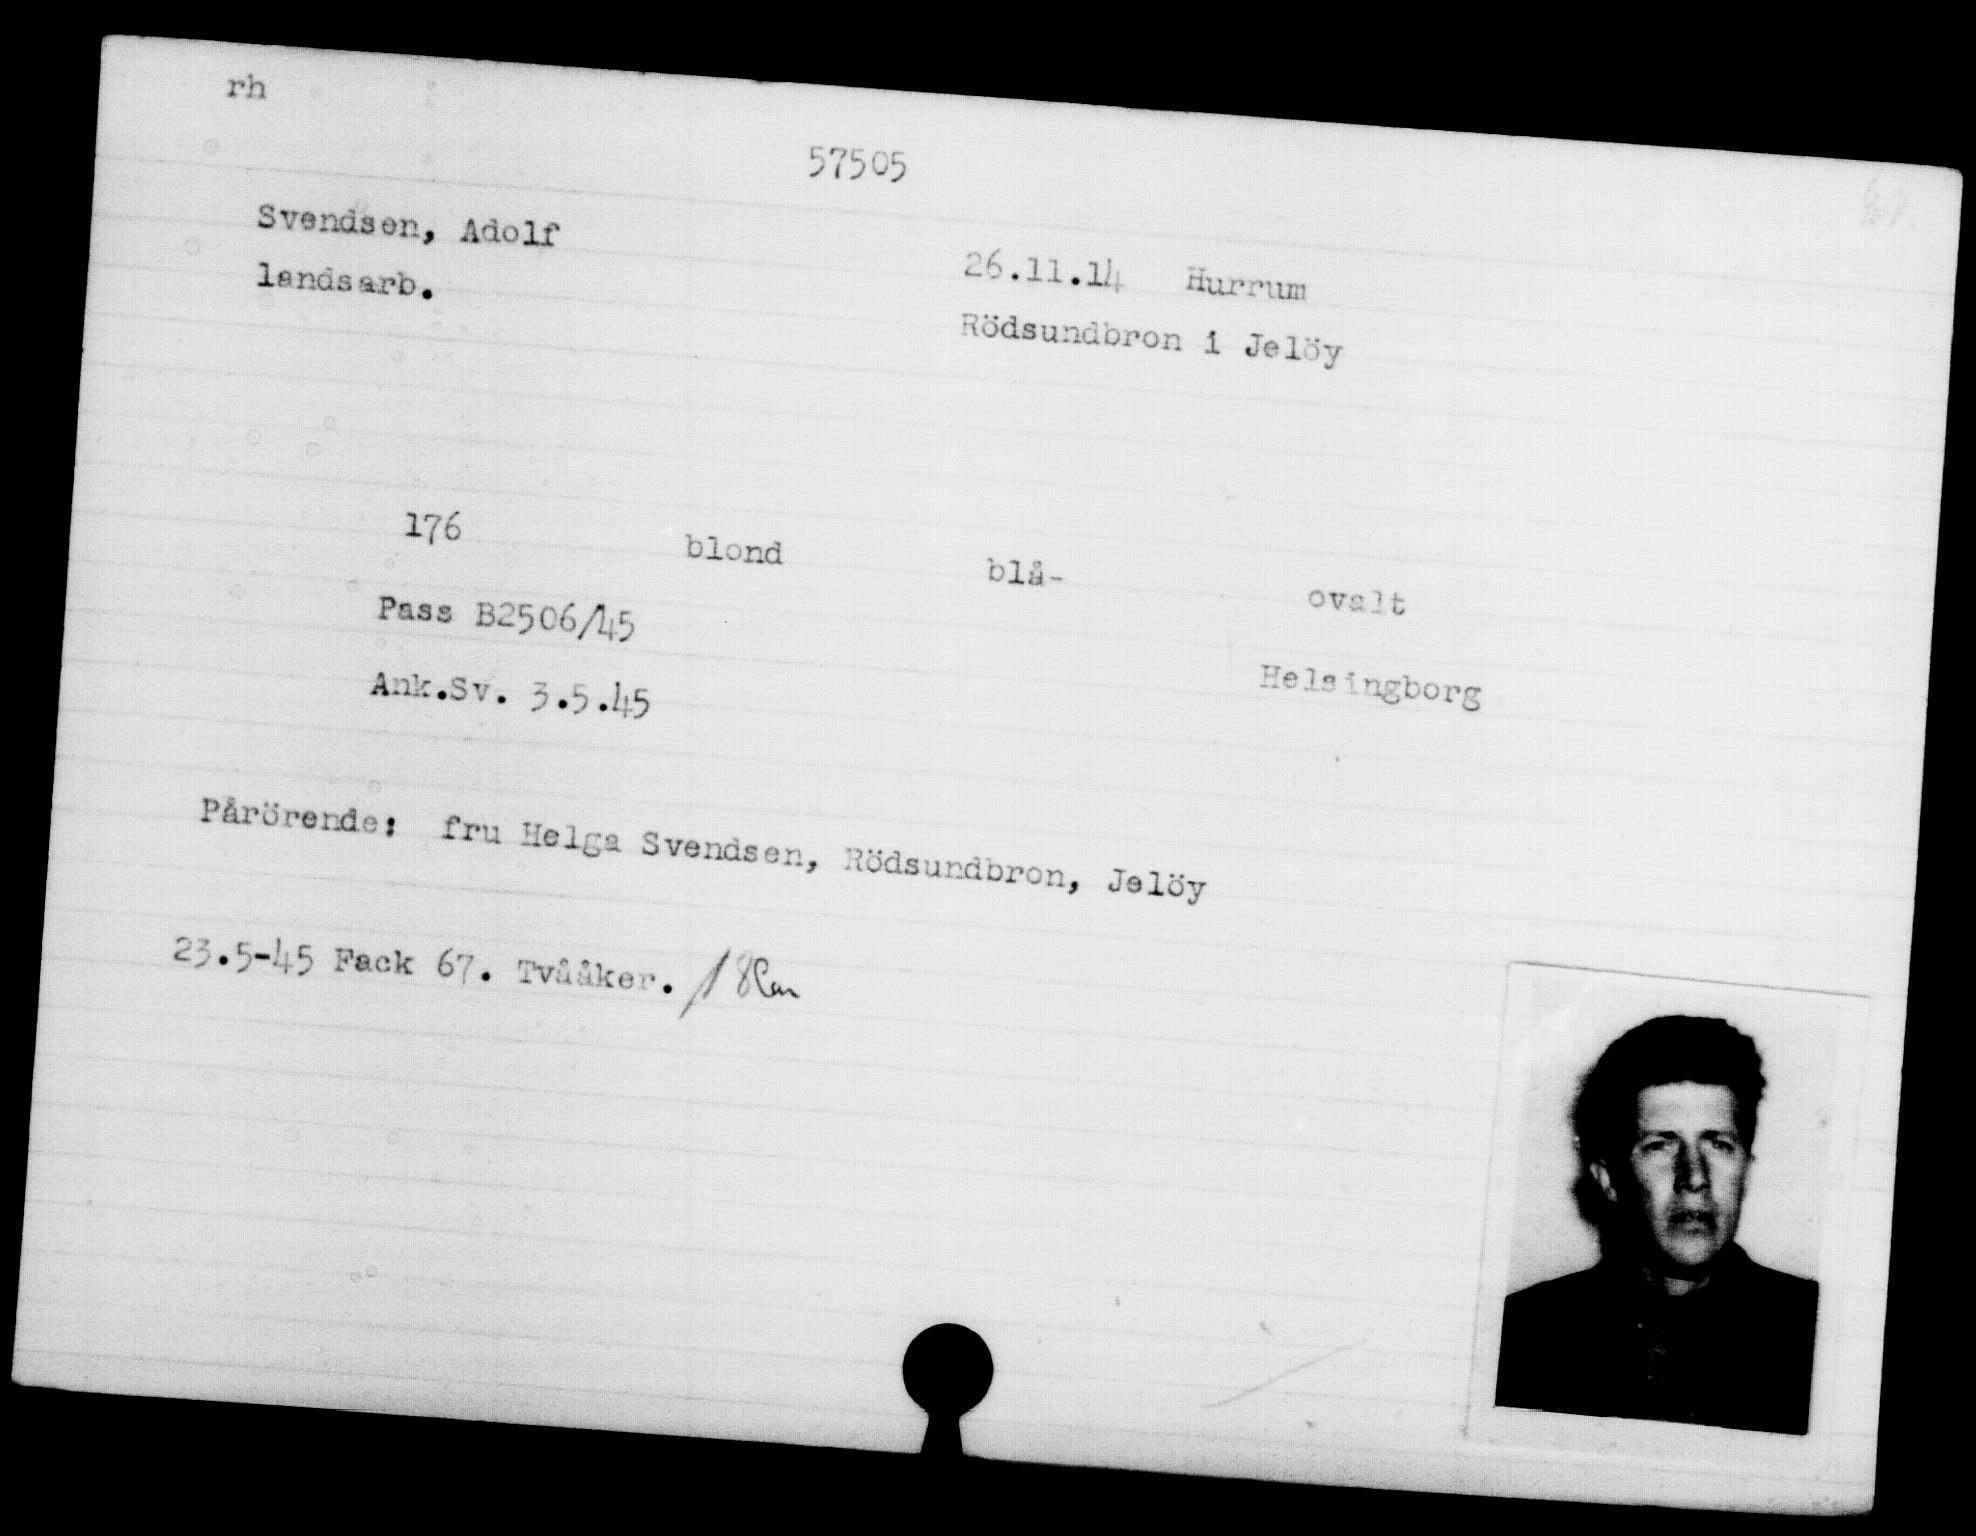 rh
57505
Svendsen, Adolf
26.11.14 Hurrum
landsarb.
Rödsundbron i Jelöy
176 blond blå- ovalt
Pass B2506/45
Helsingborg
Ank.Sv. 3.5.45
Pårörende: fru Helga Svendsen, Rödsundbron, Jelöy
23.5-45 Fack 67. Tvååker.